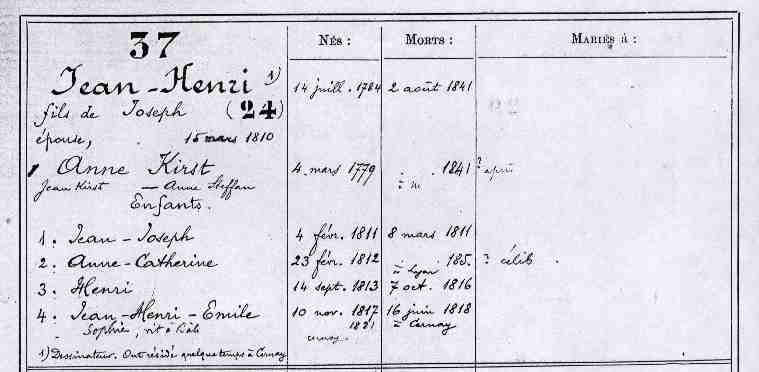 37 NÉS : MORTS : MARIÉS à :
Jean-Henri 1) 14 juill. 1784 2 août 1841
fils de Joseph (24)
épouse, 15 mars 1810
Anne Kirst 4. mars 1779 1841 ? après
Jean Kirst — Anne Steffan à
Enfants.
1. Jean-Joseph 4 févr. 1811 8 mars 1811
2. Anne-Catherine 23 févr. 1812 185. ? célib.
à Lyon
3. Henri 14 sept. 1813 7 oct. 1816
4. Jean-Henri-Emile 10 nov. 1817 16 juin 1818
Sophie, vit à 1821 à Cernay
1) Dessinateur. Ont résidé quelque temps à Cernay